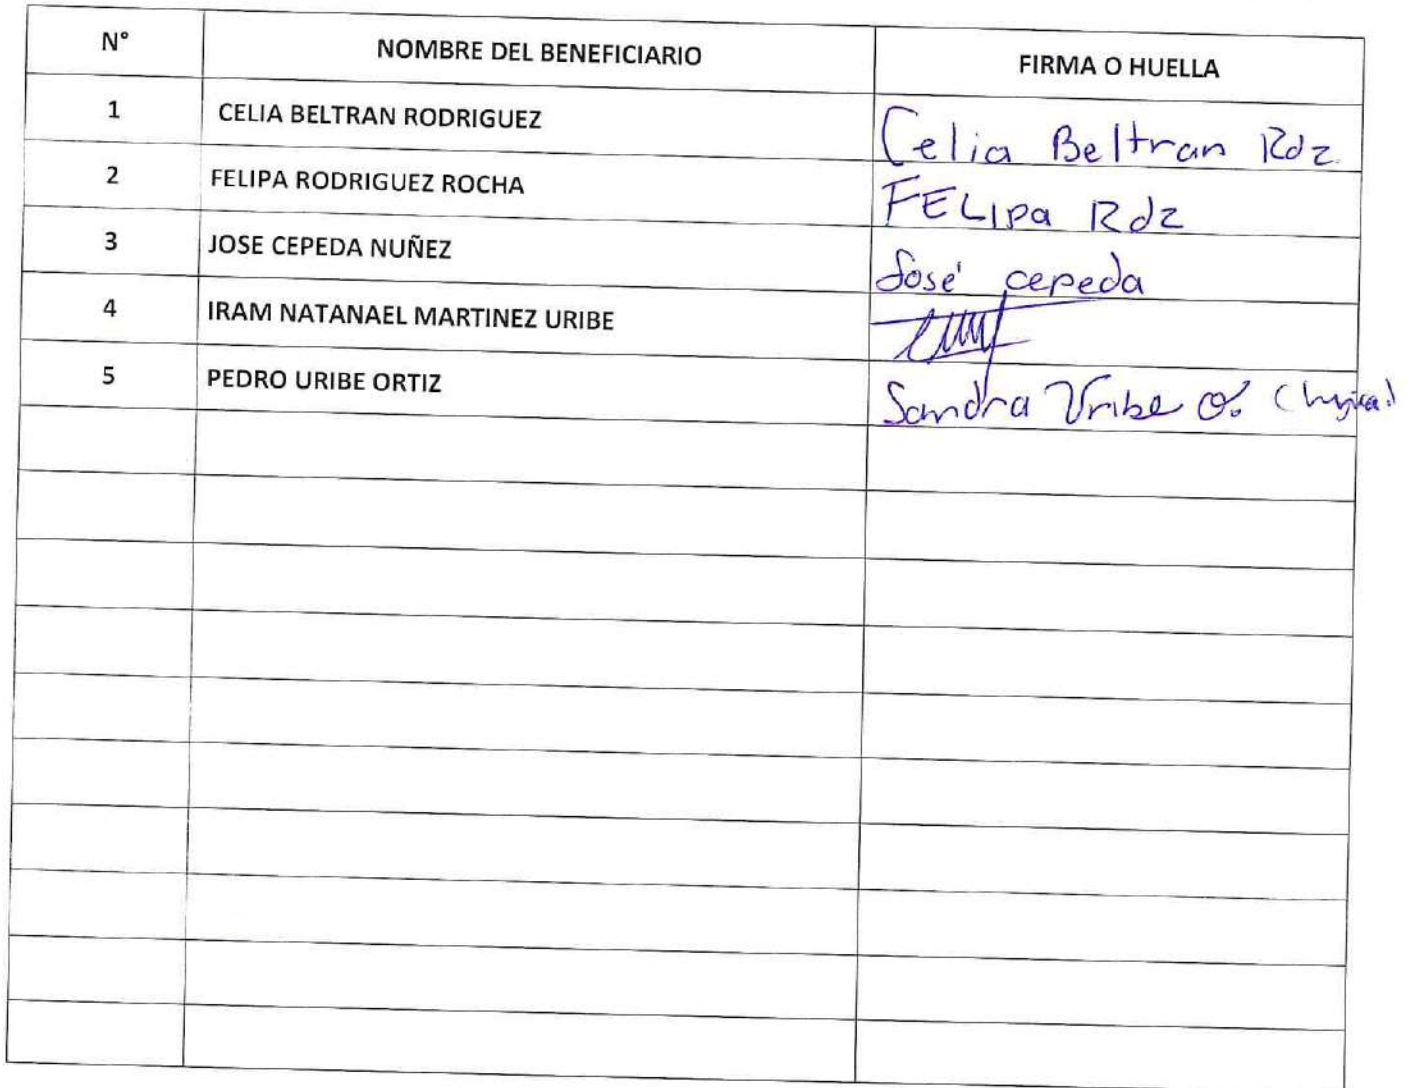 N° NOMBRE DEL BENEFICIARIO FIRMA O HUELLA
1 CELIA BELTRAN RODRIGUEZ Celia Beltran Rdz.
2 FELIPA RODRIGUEZ ROCHA FELIPA Rdz
3 JOSE CEPEDA NUÑEZ José cepeda
4 IRAM NATANAEL MARTINEZ URIBE
5 PEDRO URIBE ORTIZ Sandra Uribe O.